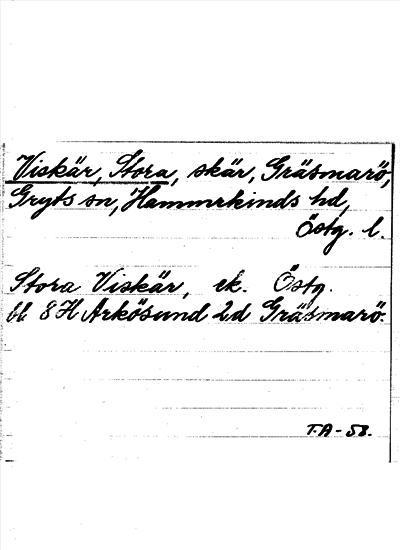 Viskär, Stora, skär, Gräsmarö,
Gryts sn, Hammarkinds hd,
Östg. l.
Stora Viskär, ek. Östg.
bl 8H Arkösund 2d Gräsmarö.
T.A-53.